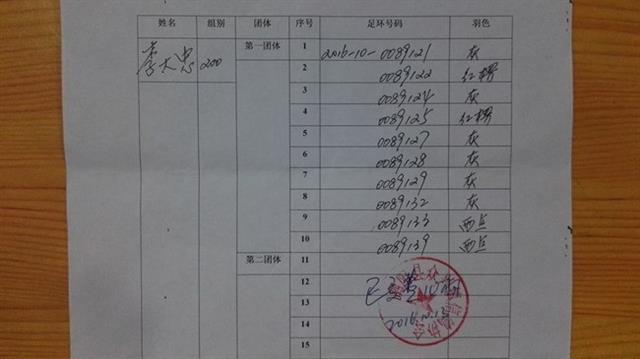 姓名 组别 团体 序号 足环号码 羽色
李大忠 200 第一团体 1 2016-10-0089121 灰
2 0089122 红楞
3 0089124 灰
4 0089125 红楞
5 0089127 灰
6 0089128 灰
7 0089129 灰
8 0089132 灰
9 0089133 雨点
10 0089139 雨点
第二团体 11
12
13
14
15